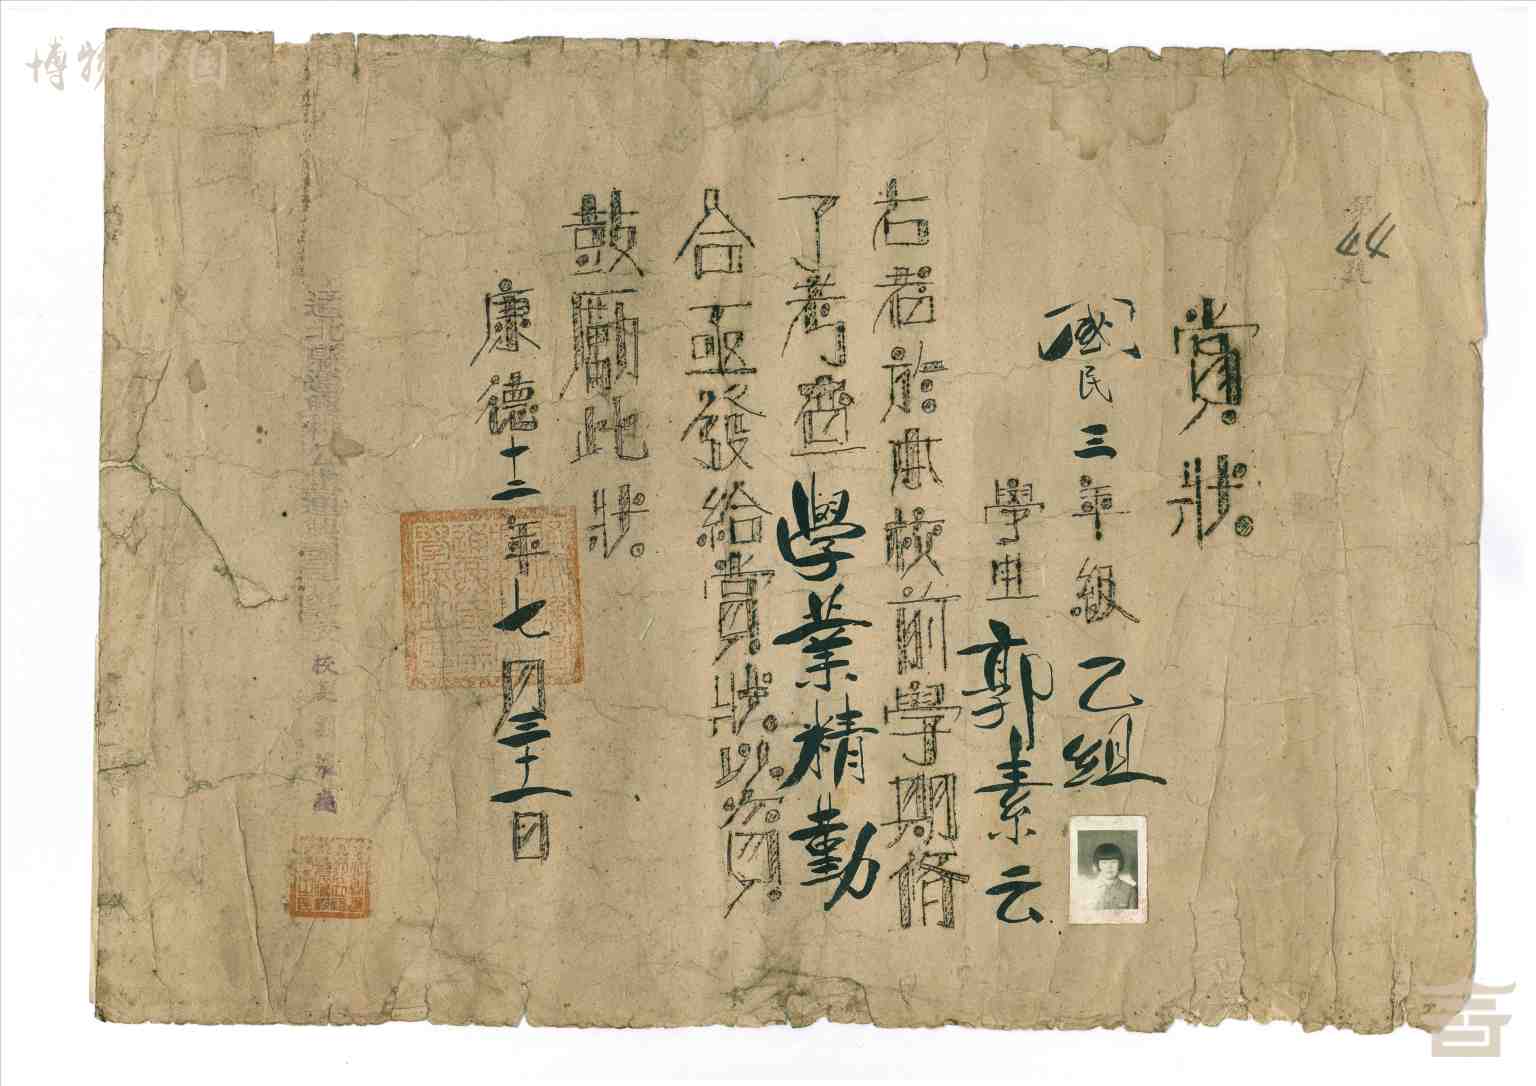 博物中国
第44號
賞狀
國民三年級乙組
學生郭素云
右君於本校前學期修
了考查學業精勤
合亟發給賞狀以資
鼓勵此狀
康德十二年七月三十一日
通北縣
校長